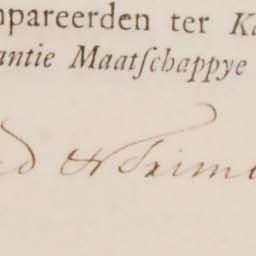 npareerden ter Ka
antie Maatſchappye
d & Trim